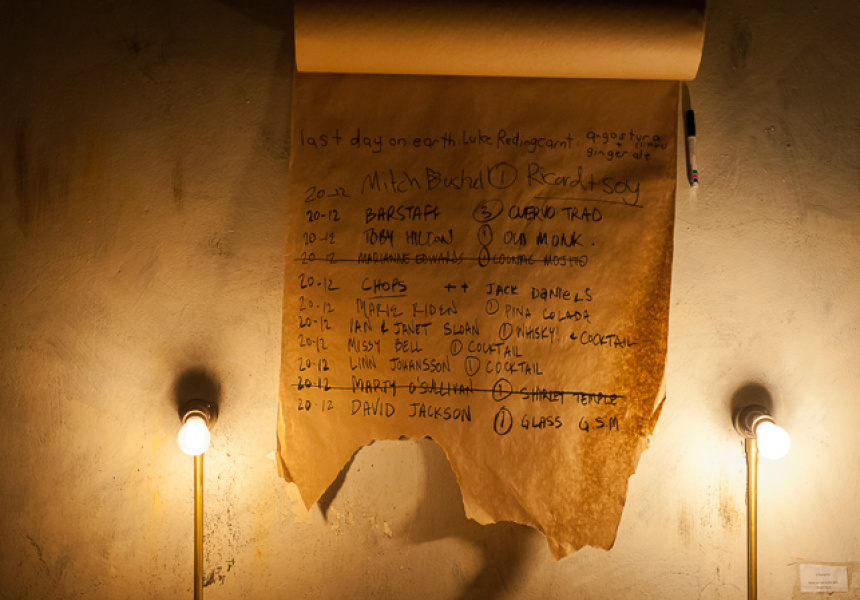 last day on earth Luke Redingcamt angostura
ginger ale
20-12 Mitch Bushel ① Ricard + soy
20-12 BARSTAFF ③ CUERVO TRAD
20-12 TOBY HILTON ① OLD MONK.
20-12 MARIANNE EDWARDS ① COGNAC MOJITO
20-12 CHOPS ++ JACK DANIELS
20-12 MARIE RIDEN ① PINA COLADA
20-12 IAN & JANET SLOAN ① WHISKY! & COCKTAIL
20-12 MISSY BELL ① COCKTAIL
20-12 LINN JOHANSSON ① COCKTAIL
20-12 MARTY O'SULLIVAN ① SHIRLEY TEMPLE
20-12 DAVID JACKSON ① GLASS G.S.M